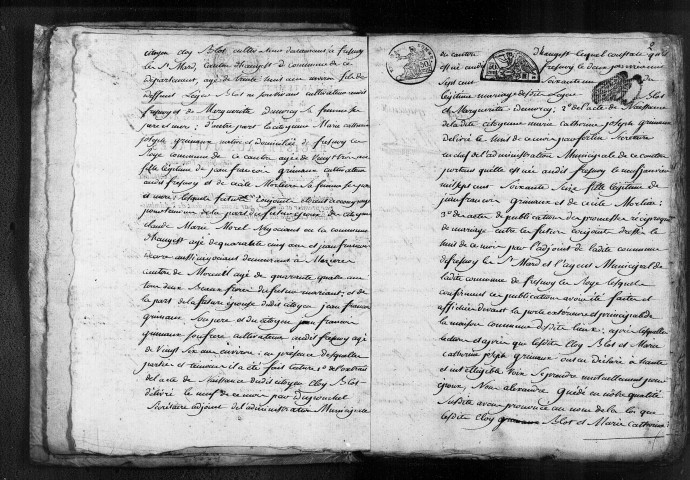 citoyen Eloy Blot cultivateur demeurant à fresnoy
le St Mard, canton d'haugest de commune de ce
departement, agé de trente huit ans environ fils de
deffunt Legne Blot en son vivant cultivateur audit
fresnoy et de Marguerite dauvrey sa femme ses
pere et mere; d'autre part la citoyenne Marie catherine
joseph grimaux native et domiciliée de fresnoy en
Roye commune de ce canton agée de Vingt trois ans
fille légitime de jean francois grimaux cultivateur
audit fresnoy et de cecile Morlière sa femme ses pere
et mere; lesquels futurs conjoints étoient accompagnés
pour temoins de la part du futur époux de citoyen
claude Marie Morel Negociant en la commune
d'haugest agé de quarante cinq ans et jean francois
aussi négociant demeurant à Mezieres
canton de Moreuil agé de quarante quatre ans
tous deux Beaux freres du futur mariant; et de
la part de la future épouse dudit citoyen jean francois
grimaux son pere et du citoyen jean francois
grimaux son frere cultivateur audit fresnoy agé
de Vingt six ans environ; en presence desquelles
parties et temoins il a été fait lecture 1° de l'extrait
de l'acte de Naissance dudit citoyen Eloy Blot
délivré le neuf de ce mois par
Secretaire adjoint de l'administration Municipale
2
du canton d'haugest lequel constate qu'il
est né audit fresnoy le deux janvier mil
sept cent soixante un du
légitime mariage desdits Legne Blot
et Marguerite dauvrey; 2° de l'acte de Naissance
de ladite citoyenne marie catherine joseph grimaux
délivré le huit de ce mois par fortin Secretaire
en chef de l'administration Municipale de ce canton
portant qu'elle est née audit fresnoy le neuf janvier
mil sept cent soixante Seize fille légitime de
jean francois grimaux et de cécile Morlier;
3° des actes de publication de promesses réciproques
de mariage entre les futurs conjoints dressés le
huit de ce mois par l'adjoint de ladite commune
de fresnoy le St Mard et l'agent Municipal de
ladite commune de fresnoy en Roye lesquels
confirment ces publications avoir été faites et
affichées devant la porte extérieure et principale de
la maison commune desdits lieux; après laquelle
lecture et après que lesdits Eloy Blot et Marie
catherine joseph grimaux ont eu déclaré à haute
et intelligible Voix se prendre mutuellement pour
époux, Nous alexandre Guédé en notre qualité
susdite avons prononcé au nom de la loi que
lesdits Eloy Blot et Marie Catherine